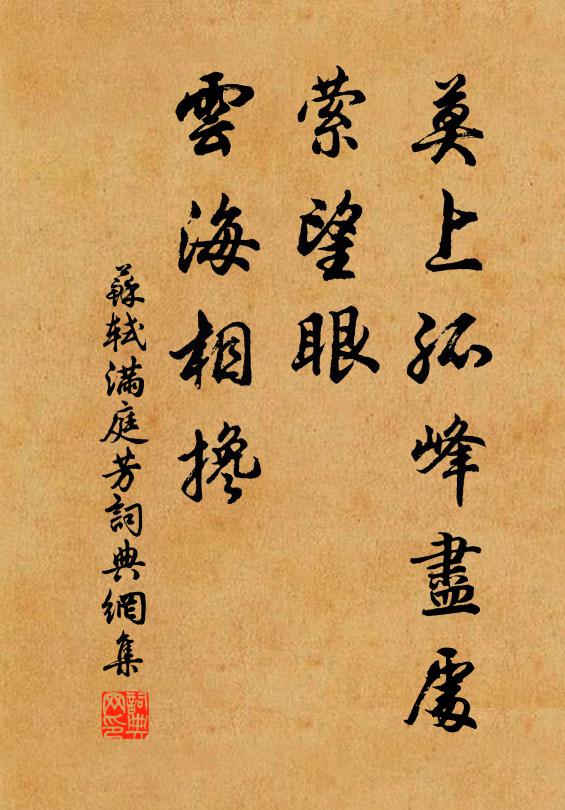 莫上孤峰盡處
縈望眼
雲海相攙
蘇軾滿庭芳詞典網集
詞典網印